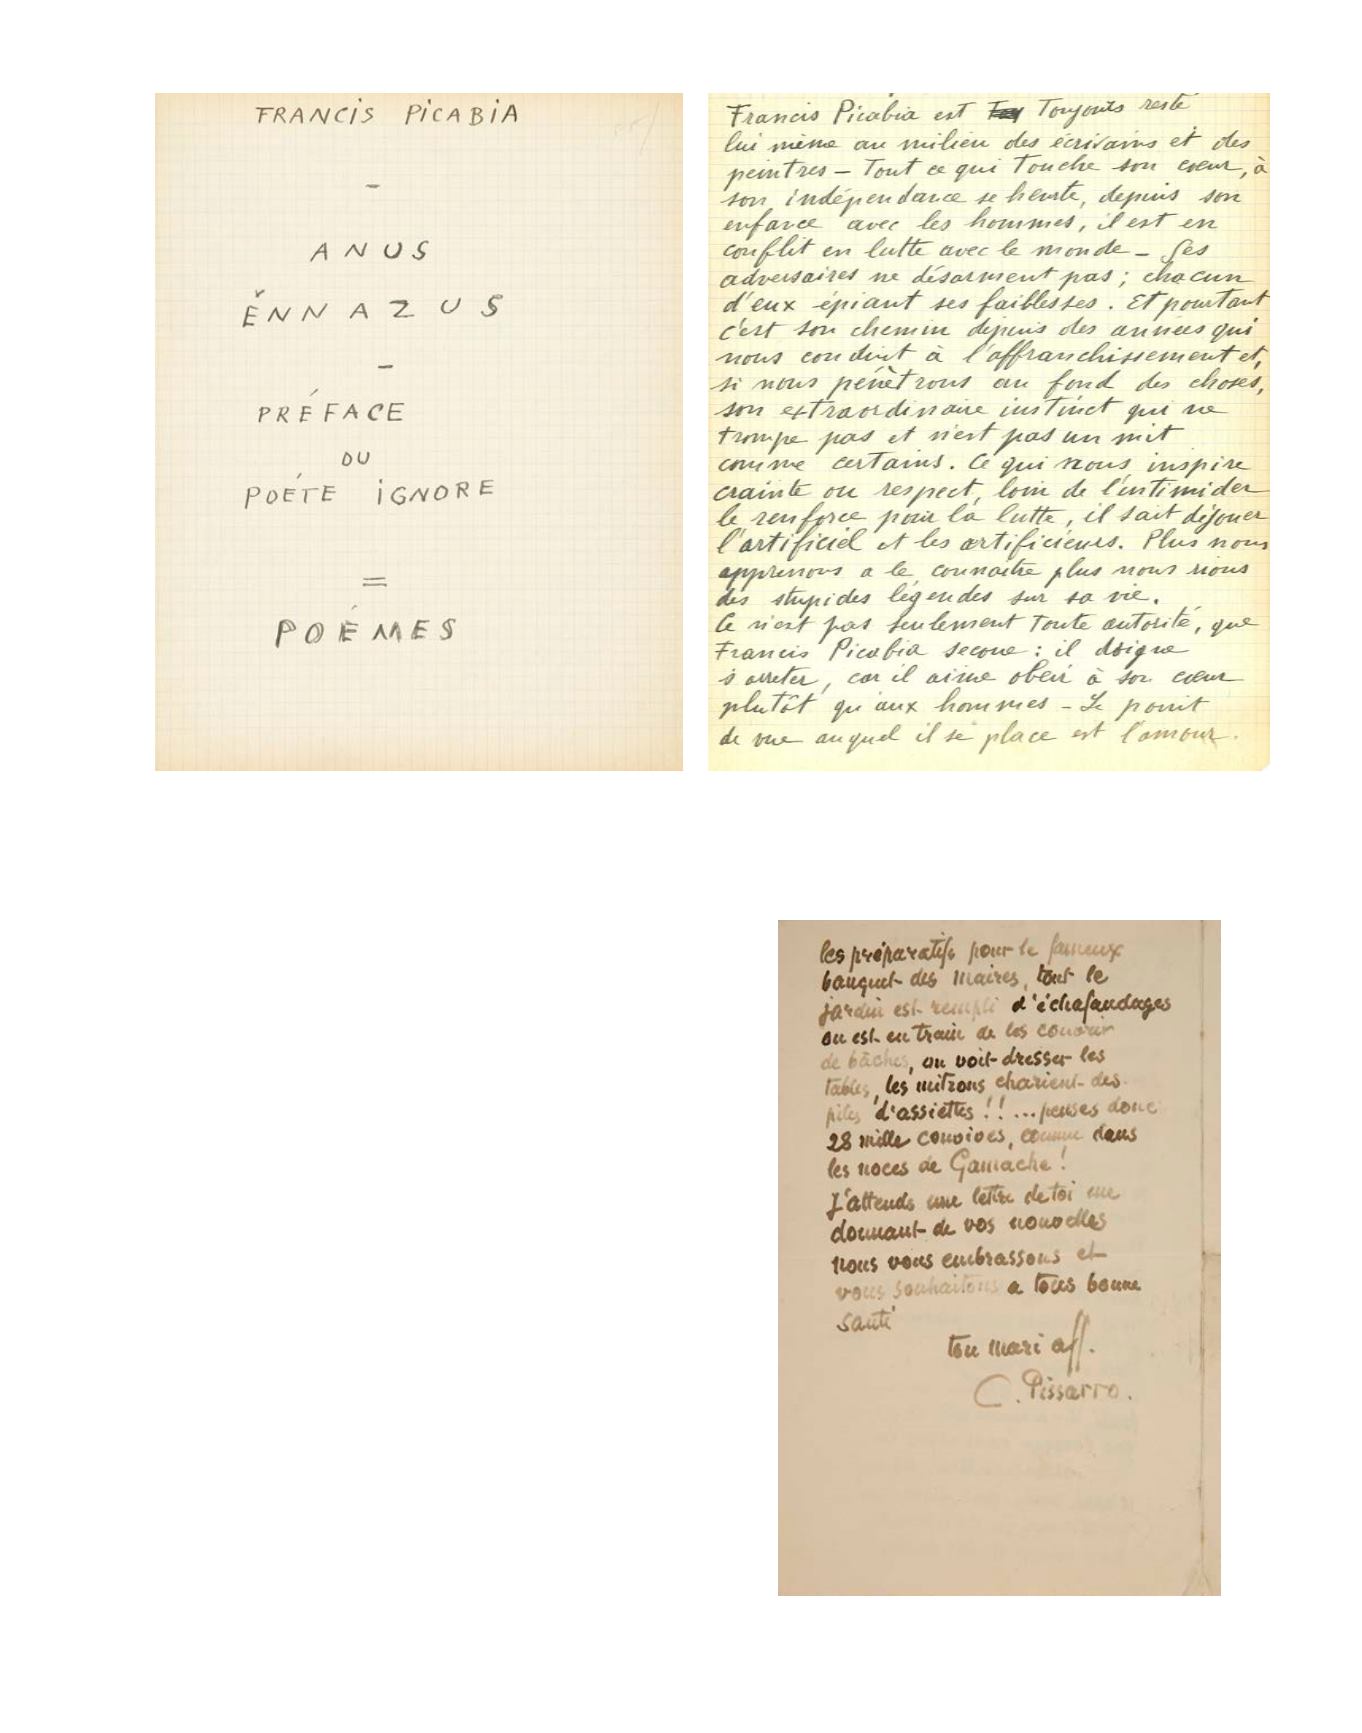 FRANCIS PICABIA
–
ANUS
ÉNNAZUS
–
PRÉFACE
DU
POÉTE IGNORE
=
POÉMES
Francis Picabia est Toujours resté
lui même au milieu des écrivains et des
peintres – Tout ce qui Touche son cœur, à
son indépendance se heurte, depuis son
enfance avec les hommes, il est en
conflit en lutte avec le monde – Ses
adversaires ne désarment pas ; chacun
d'eux épiant ses faiblesses. Et pourtant
c'est son chemin depuis des années qui
nous conduit à l'affranchissement et,
si nous pénètrons au fond des choses,
son extraordinaire instinct qui ne
trompe pas et n'est pas un mit
comme certains. Ce qui nous inspire
crainte ou respect, loin de l'intimider
le renforce pour la lutte, il sait déjouer
l'artificiel et les artificieurs. Plus nous
apprenons a le connaitre plus nous rions
des stupides légendes sur sa vie.
Ce n'est pas seulement Toute autorité, que
Francis Picabia secoue : il daigne
s'arreter, car il aime obeir à son cœur
plutôt qu'aux hommes – Le point
de vue auquel il se place est l'amour.
les préparatifs pour le fameux
banquet des Maires, tout le
jardin est rempli d'échafaudages
on est en train de les couvrir
de bâches, on voit dresser les
tables, les mitrons charient des
piles d'assiettes !! ... penses donc
28 mille convives, comme dans
les noces de Gamache !
J'attends une lettre de toi me
donnant de vos nouvelles
nous vous embrassons et
vous souhaitons a tous bonne
santé
ton mari aff.
C. Pissarro.